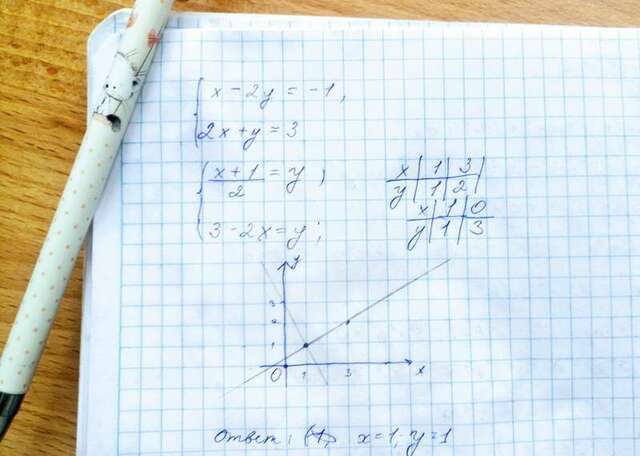 x - 2y = -1,
2x + y = 3
x + 1
2
= y ,
3 - 2x = y ;
x | 1 | 3
y | 1 | 2
x | 1 | 0
y | 1 | 3
y
3
2
1
0 1 3 x
Ответ: x = 1; y = 1